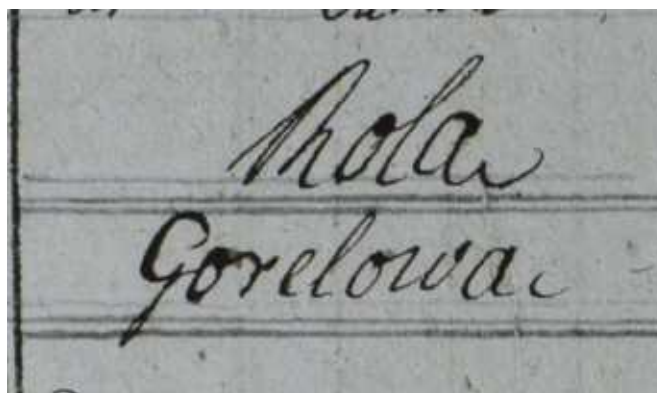 Rola
Gorelowa